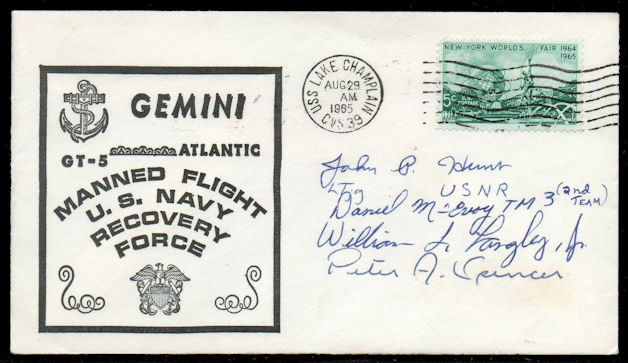 GEMINI
GT-5 ATLANTIC
MANNED FLIGHT
U. S. NAVY
RECOVERY
FORCE
USS LAKE CHAMPLAIN
AUG 29
AM
1965
CVS 39
NEW YORK WORLD'S FAIR 1964
1965
5¢
U.S. POSTAGE
John P. Hunt
LTjg USNR
Daniel McEvoy TM 3 (2nd TEAM)
William L. Langley, Jr.
Peter A. Spencer